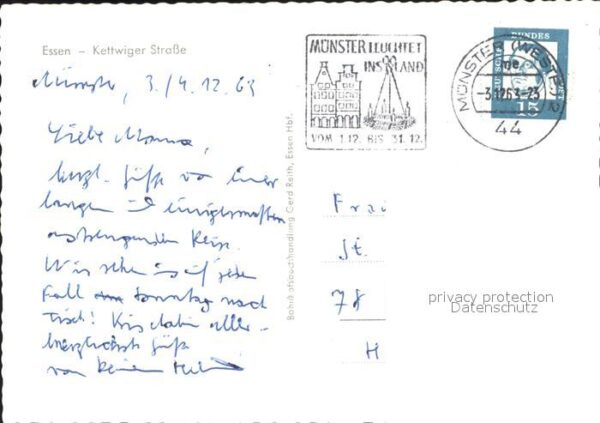 Essen – Kettwiger Straße
Münster, 3./4.12.63
Liebe Mama,
herzl. Grüße von einer
langen und einigermaßen
anstrengenden Reise.
Wir sehen uns auf jeden
Fall Sonntag nach
Tisch! Bis dahin aller-
herzlichste Grüße
von Deinem
Bahnhofsbuchhandlung Gerd Reith, Essen Hbf.
MÜNSTER LEUCHTET
INS LAND
VOM 1.12. BIS 31.12.
MÜNSTER (WESTF) 2
me
-3.12.63-23
44
BUNDES
15
Frau
St.
78
H
privacy protection
Datenschutz